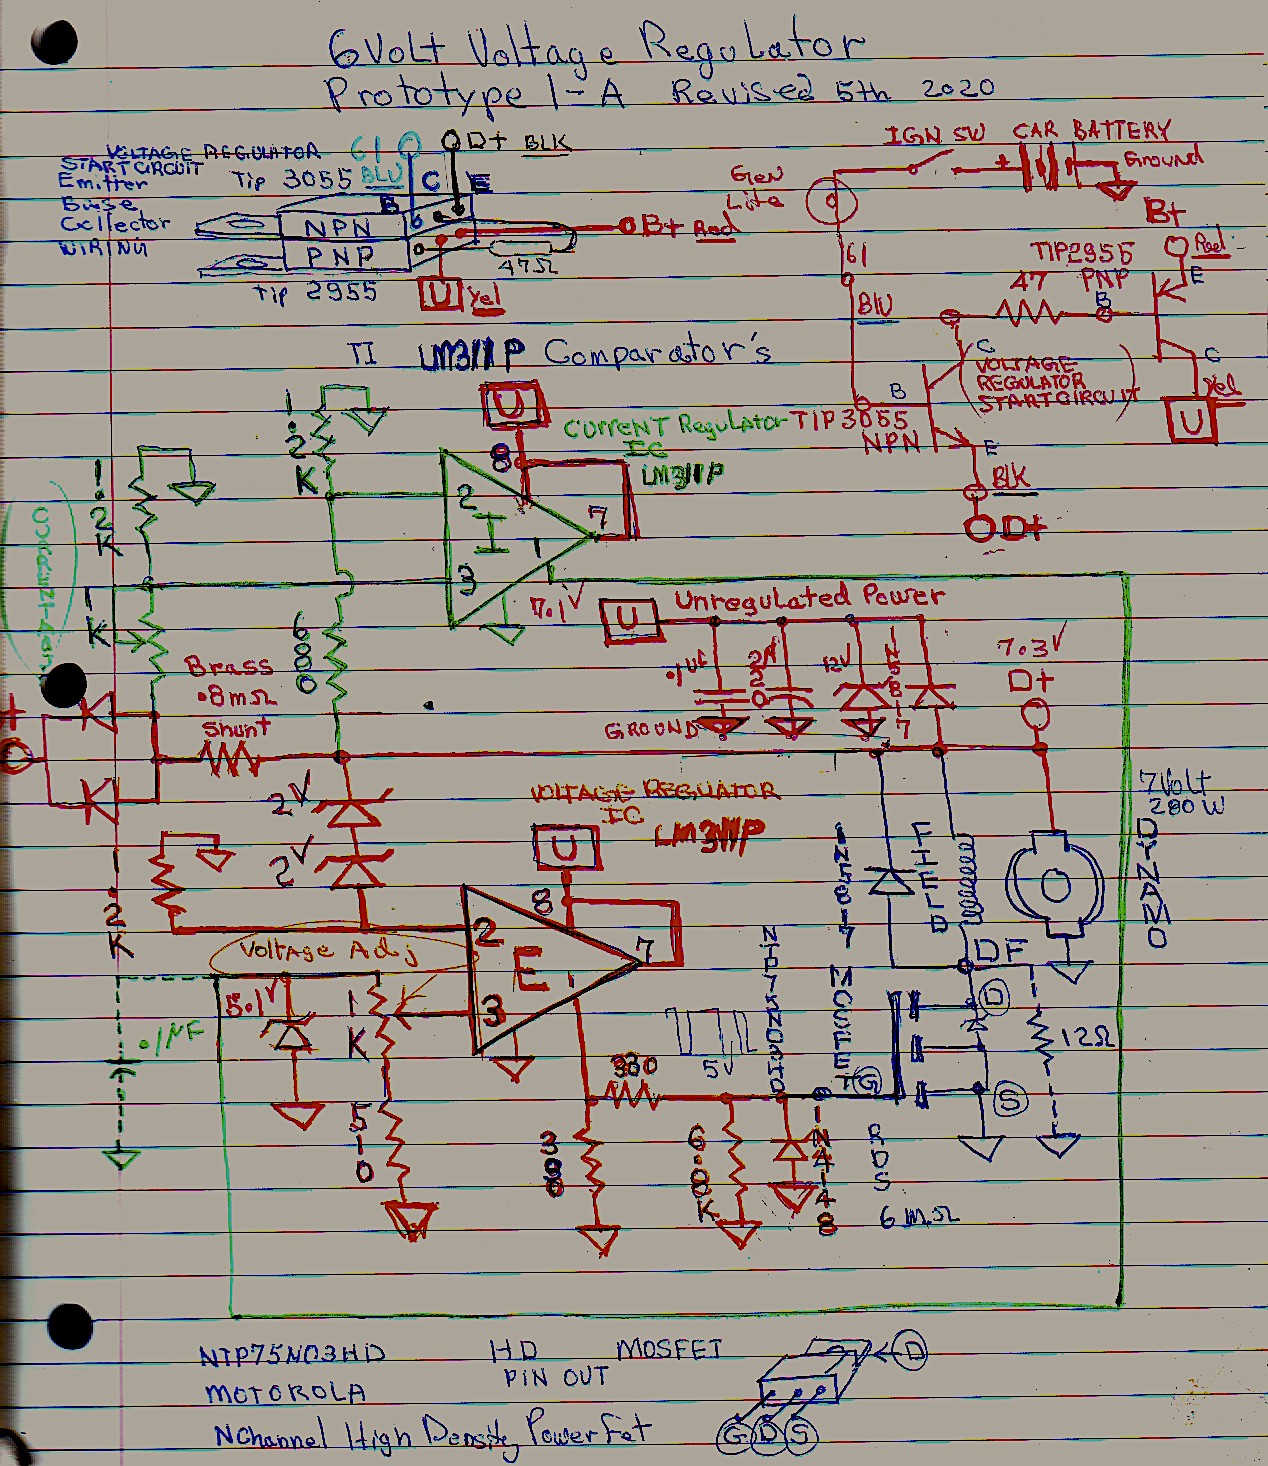 6Volt Voltage Regulator
Prototype 1-A Revised 5th 2020
VOLTAGE REGULATOR
START CIRCUIT
Emitter
Base
Collector
WIRING
61
BLU
D+ BLK
Tip 3055
B C E
NPN
PNP
Tip 2955
47Ω
B+ Red
U Yel
IGN SW CAR BATTERY
+
Ground
Gen
Lite
61
BLU
B+
Red
TIP2955
PNP
47
B
E
C
C
VOLTAGE
REGULATOR
START CIRCUIT
Yel
U
B
TIP3055
NPN
E
BLK
D+
TI LM311P Comparator's
U
CURRENT Regulator
IC
LM311P
1.2K
1.2K
8
2
I
7
1
3
7.1V
1K
680
Brass
.8mΩ
Shunt
+
U Unregulated Power
.1uf
12V
GROUND
7.3V
D+
2V
2V
VOLTAGE REGULATOR
IC
LM311P
U
8
2
E
7
1
3
1.2K
Voltage Adj
5.1V
1K
510
.1µF
330
5V
6.80K
1N4148
NTP75N03HD
MOSFET
1N5817
FIELD
DF
7Volt
280W
DYNAMO
D
G
S
12Ω
RDS
6mΩ
NTP75N03HD HD MOSFET
PIN OUT
MOTOROLA
NChannel High Density PowerFet
D
G D S